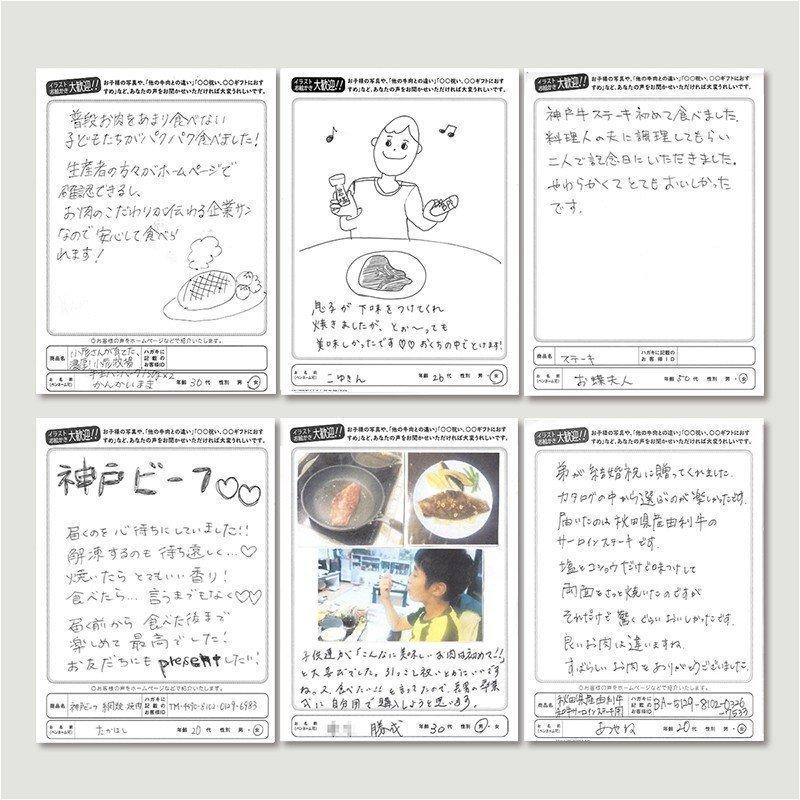 イラスト
お絵かき
大歓迎!!
お子様の写真や、「他の牛肉との違い」「〇〇祝い、〇〇ギフトにおす
すめ」など、あなたの声をお聞かせいただければ大変うれしいです。
普段お肉をあまり食べない
子どもたちがパクパク食べました!
生産者の方々がホームページで
確認できるし、
お肉のこだわりが伝わる企業サン
なので安心して食べら
れます!
◎お客様の声をホームページなどで紹介いたします。
商品名
小形さんが育てた、
ハガキに
記載の
お客様ID
お名前
(ペンネーム可)
かんかいまき
年齢 30代 性別 男・女
イラスト
お絵かき
大歓迎!!
お子様の写真や、「他の牛肉との違い」「〇〇祝い、〇〇ギフトにおす
すめ」など、あなたの声をお聞かせいただければ大変うれしいです。
息子が下味をつけてくれ
焼きましたが、とぉ〜っても
美味しかったです♡♡おくちの中でとけます!
こゆきん
年齢 26代 性別 男・女
イラスト
お絵かき
大歓迎!!
お子様の写真や、「他の牛肉との違い」「〇〇祝い、〇〇ギフトにおす
すめ」など、あなたの声をお聞かせいただければ大変うれしいです。
神戸牛ステーキ初めて食べました。
料理人の夫に調理してもらい
二人で記念日にいただきました。
やわらかくてとてもおいしかった
です。
商品名
ステーキ
ハガキに
記載の
お客様ID
お名前
(ペンネーム可)
お蝶夫人
年齢 50代 性別 男・女
イラスト
お絵かき
大歓迎!!
お子様の写真や、「他の牛肉との違い」「〇〇祝い、〇〇ギフトにおす
すめ」など、あなたの声をお聞かせいただければ大変うれしいです。
神戸ビーフ♡♡
届くのを心待ちにしていました!!
解凍するのも待ち遠しく…♡
焼いたらとてもいい香り!
食べたら…言うまでもなく♡♡
届く前から食べた後まで
楽しめて最高でした!
お友だちにもpresentしたい!
◎お客様の声をホームページなどで紹介いたします。
商品名
神戸ビーフ 網焼 焼肉
ハガキに
記載の
お客様ID
TM-4590-8102-0129-6983
お名前
(ペンネーム可)
たかはし
年齢 20代 性別 男・女
イラスト
お絵かき
大歓迎!!
お子様の写真や、「他の牛肉との違い」「〇〇祝い、〇〇ギフトにおす
すめ」など、あなたの声をお聞かせいただければ大変うれしいです。
子供達が「こんなに美味しいお肉は初めて!!」
と大喜びでした。引っこし祝いとかにいいです
ね。又、食べたい!!と言ってたので、長男の卒業
式に自分用で購入しようと思います。
お名前
(ペンネーム可)
勝成
年齢 30代 性別 男・女
イラスト
お絵かき
大歓迎!!
お子様の写真や、「他の牛肉との違い」「〇〇祝い、〇〇ギフトにおす
すめ」など、あなたの声をお聞かせいただければ大変うれしいです。
弟が結婚祝に贈ってくれました。
カタログの中から選ぶのが楽しかったです。
届いたのは秋田県産由利牛の
サーロインステーキです。
塩とコショウだけで味つけして
両面をさっと焼いたのですが
それだけで驚くぐらいおいしかったです。
良いお肉は違いますね。
すばらしいお肉をありがとうございました。
◎お客様の声をホームページなどで紹介いたします。
商品名
秋田県産由利牛
ハガキに
記載の
お客様ID
BA-5129-8102-0326
-7533
お名前
(ペンネーム可)
あやね
年齢 20代 性別 男・女